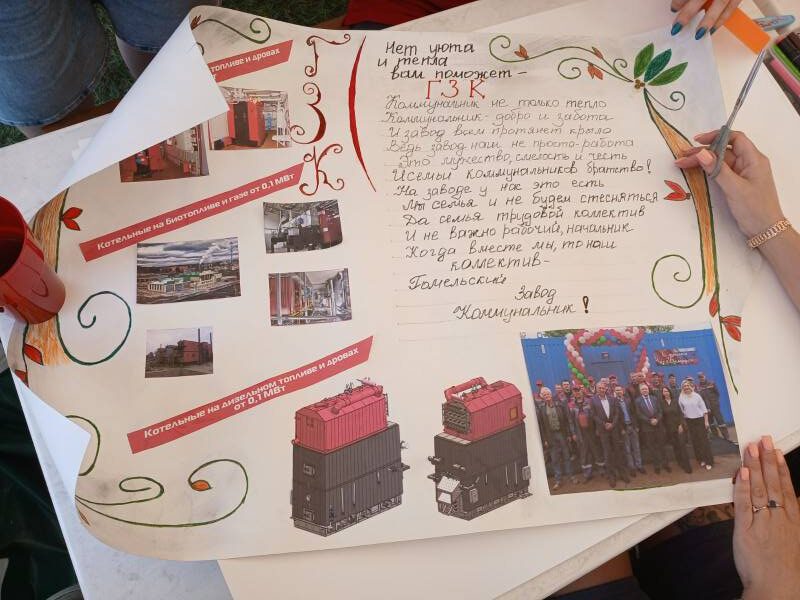 топливе и дровах
от 0,1 МВт
Котельные на биотопливе и газе от 0,1 МВт
Котельные на дизельном топливе и дровах
от 0,1 МВт
ГЗК
Нет уюта
и тепла
вам поможет –
ГЗК
Коммунальник не только тепло
Коммунальник - добро и забота
И завод всем протянет крыло
Ведь завод наш не просто-работа
Это мужество, смелость и честь
И семьи коммунальников братство!
На заводе у нас это есть
Мы семья и не будем стесняться
Да семья трудовой коллектив
И не важно рабочий, начальник
Когда вместе мы, то наш
коллектив –
Гомельский
Завод
"Коммунальник!